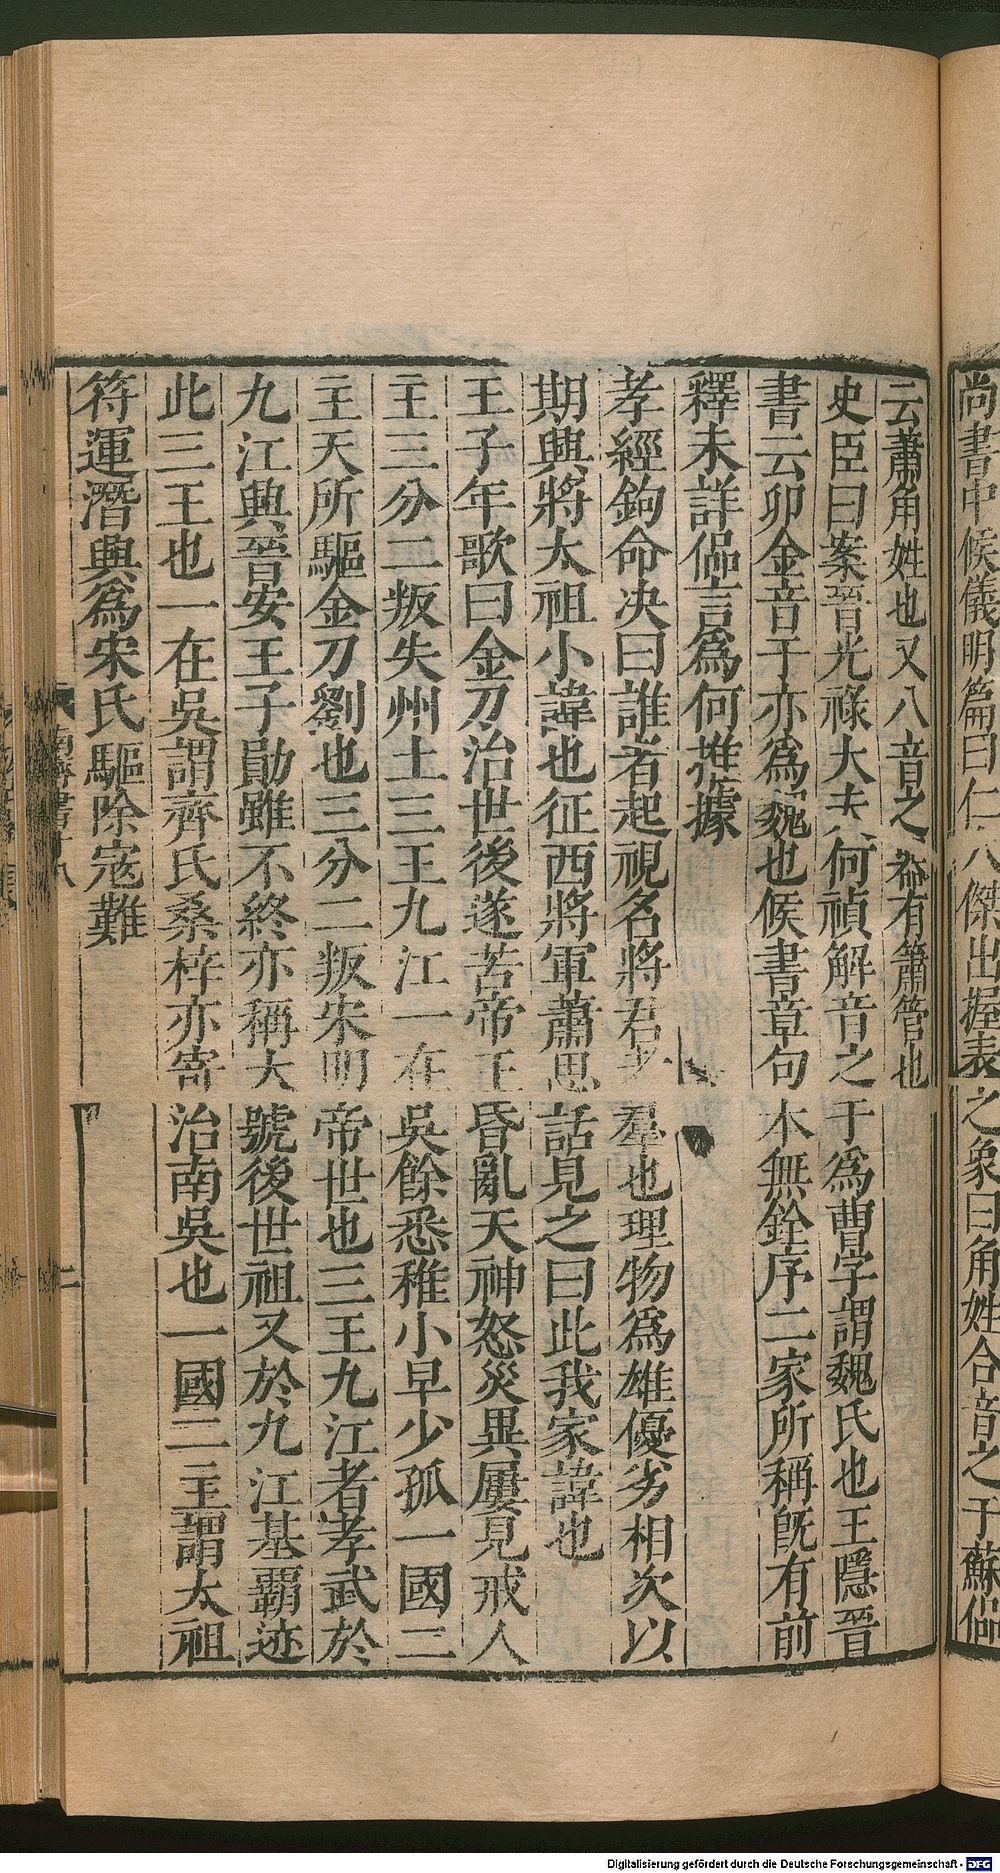 尚書中候儀明篇曰仁人傑出握表之象曰角姓合音之于蘇侶
云蕭角姓也又八音之器有簫管也
史臣曰案晉光祿大夫何禎解音之于爲曹字謂魏氏也王隱晉
書云卯金音于亦爲魏也候書章句本無銓序二家所稱旣有前
釋未詳侶言爲何推據
孝經鉤命決曰誰者起視名將君者羣也理物爲雄優劣相次以
期興將太祖小諱也征西將軍蕭思話見之曰此我家諱也
王子年歌曰金刀治世後遂苦帝王昏亂天神怒災異屢見戒人
主三分二叛失州土三王九江一在吳餘悉稚小早少孤一國二
主天所驅金刀劉也三分二叛宋明帝世也三王九江者孝武於
九江興晉安王子勛雖不終亦稱大號後世祖又於九江基霸迹
此三王也一在吳謂齊氏桑梓亦寄治南吳也一國二主謂太祖
符運潛興爲宋氏驅除寇難
南齊書十八
二
Digitalisierung gefördert durch die Deutsche Forschungsgemeinschaft - DFG